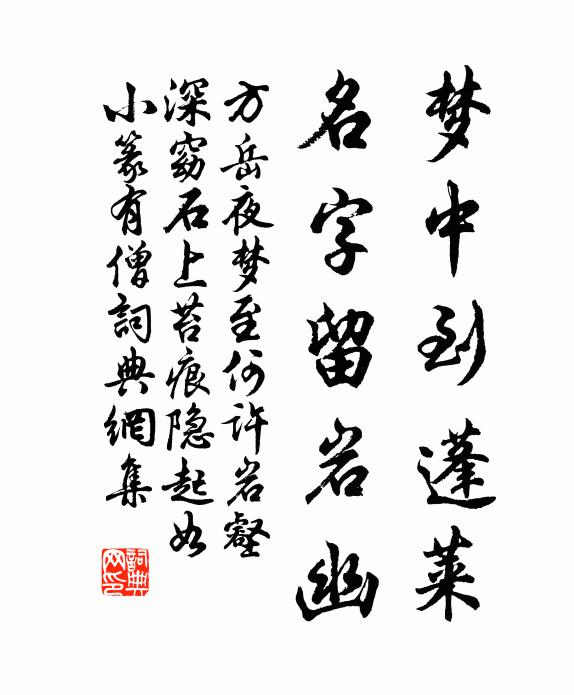 梦中到蓬莱
名字留岩幽
方岳夜梦至何许岩壑
深窈石上苔痕隐起如
小篆有僧詞典網集
詞典网印